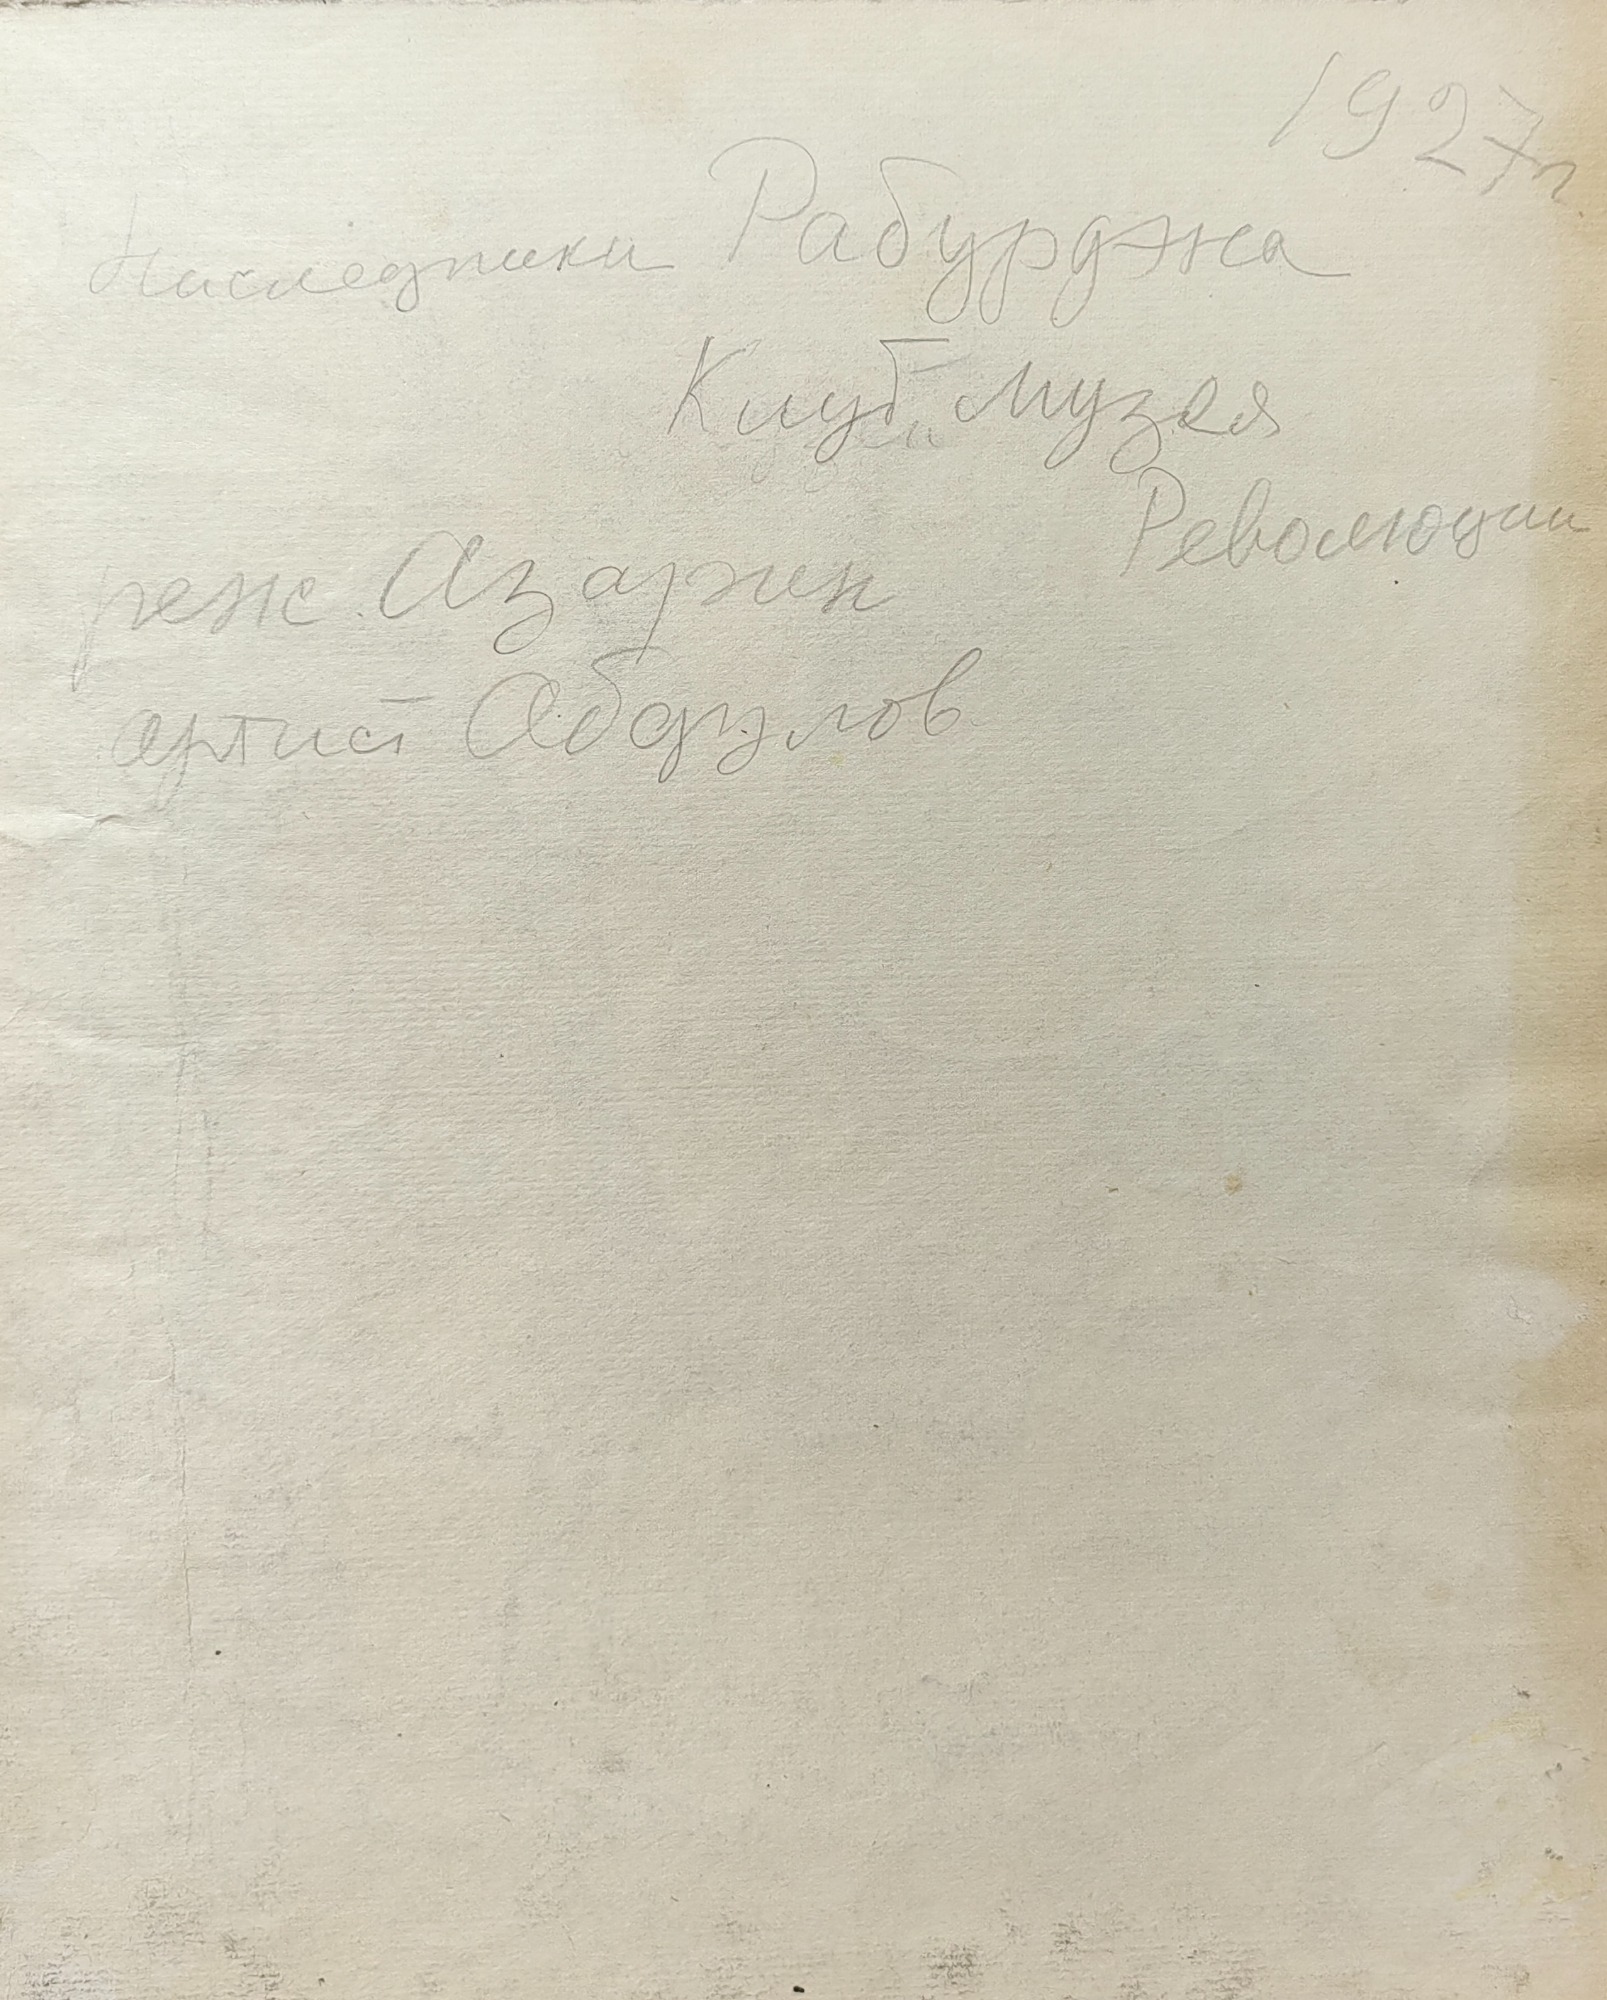 1927 г
Наследники Рабурджа
Клуб Музея
Революции
реж. Азарин
артист Абдулов